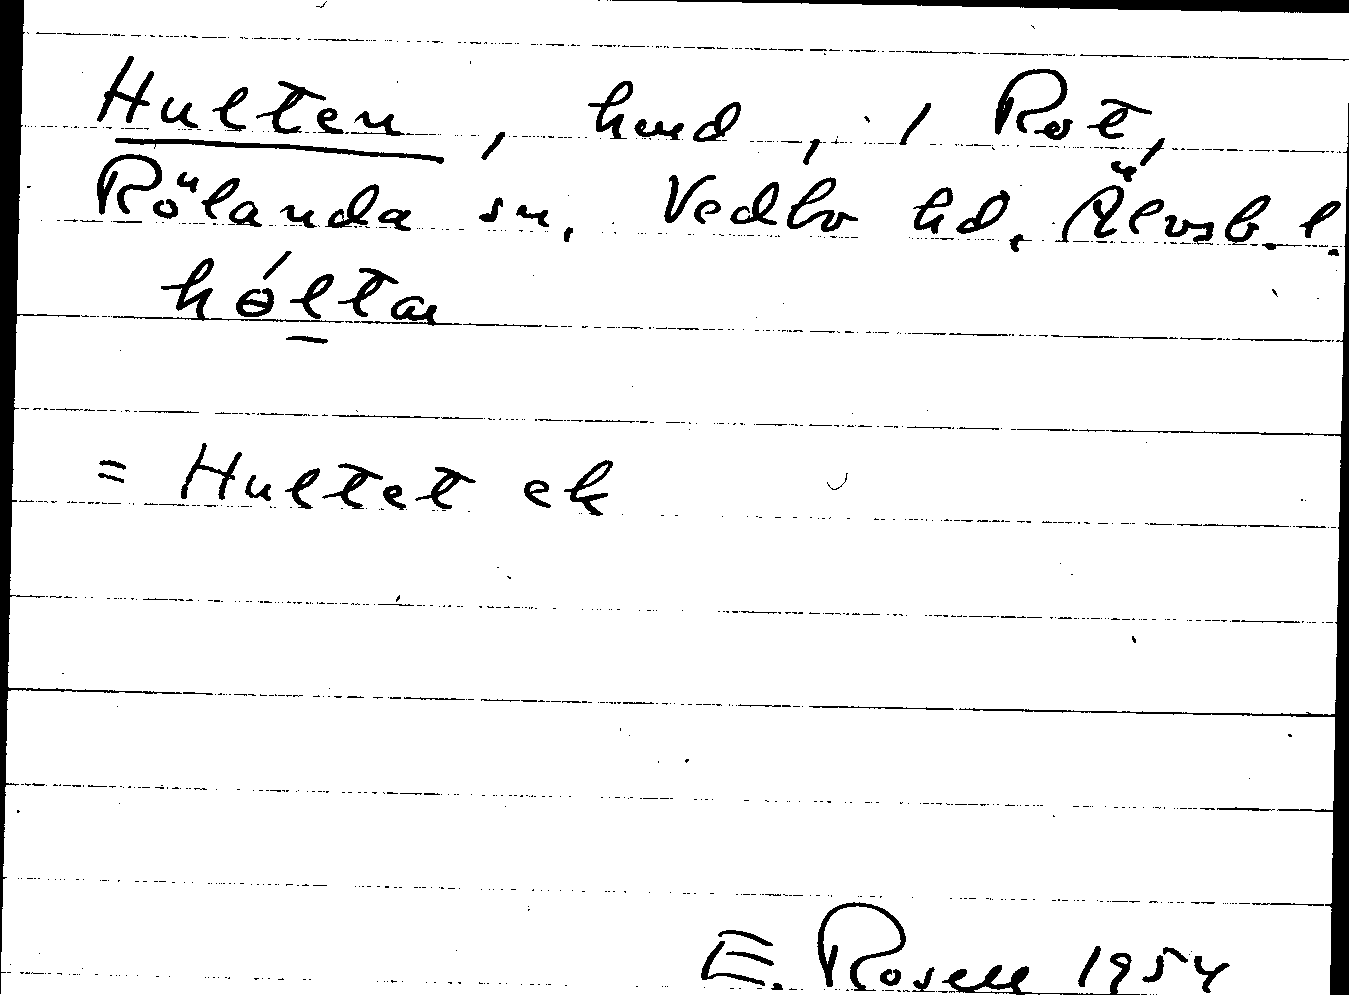 Hulten, hmd, i Rot,
Rölanda sn, Vedbo hd. Älvsb. l.
hɵ́ltan
= Hultet ek
E. Rosell 1954